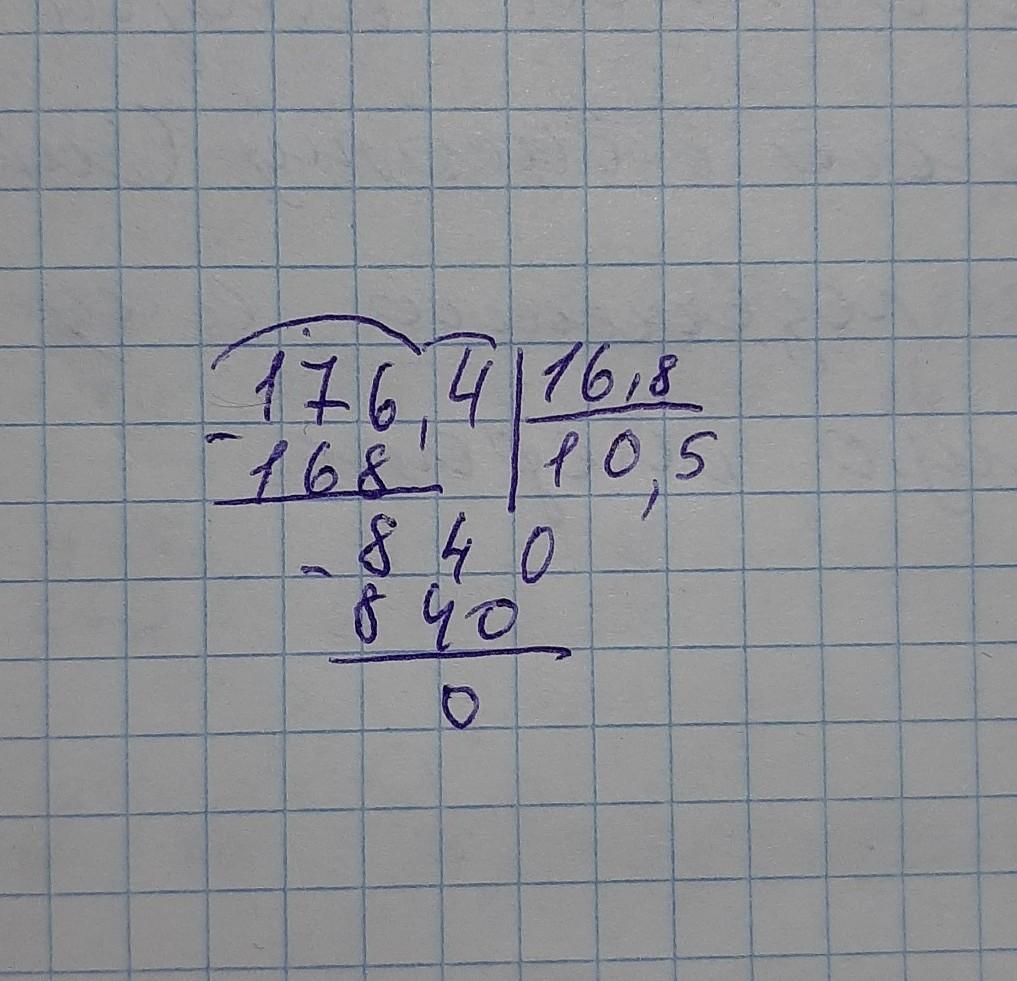 176,4 16,8
- 168 10,5
- 840
840
0